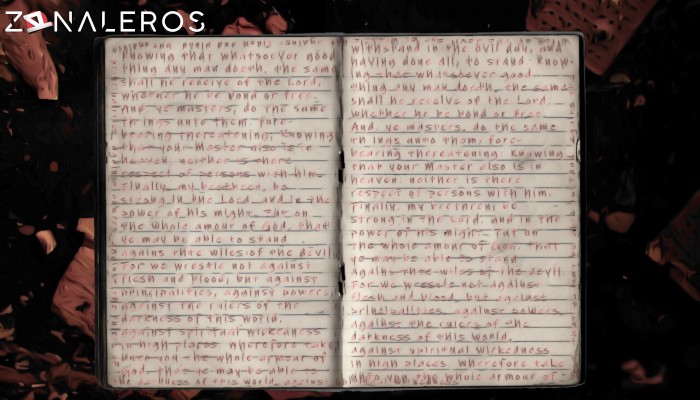 ZONALEROS
knowing that whatsoever good
thing any man doeth, the same
shall he receive of the Lord,
whether he be bond or free.
And, ye masters, do the same
things unto them, fore-
bearing threatening; Knowing
that your Master also is in
heaven, neither is there
respect of persons with him.
Finally, my brethren, be
strong in the Lord, and in the
power of his might. Put on
the whole amour of God, that
ye may be able to stand
agains the wiles of the devil
For we wrestle not against
flesh and blood, but against
principalities, against powers,
against the rulers of the
darkness of this world,
against spiritual wickedness
in high places wherefore take
unto you the whole armour of
god, that ye may be able
darkness of this world, against
withstand in the evil day, and
having done all, to stand. Know-
ing that whatsoever good
thing any man doeth, the same
shall he receive of the Lord,
whether he be bond or free.
And, ye masters, do the same
things unto them, fore-
bearing threatening: Knowing
that your Master also is in
heaven; neither is there
respect of persons with him.
Finally, my brethren, be
strong in the Lord, and in the
power of his might. Put on
the whole amour of God, that
ye may be able to stand
agains the wiles of the devil.
For we wrestle not against
flesh and blood, but against
principalities, against powers,
against the rulers of the
darkness of this world.
against spiritual wickedness
in high places. Wherefore take
unto you the whole armour of